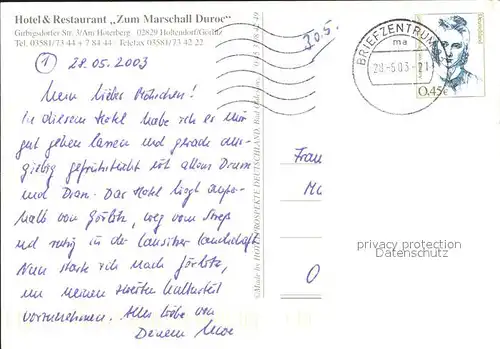 Hotel & Restaurant „Zum Marschall Duroc“
Girbigsdorfer Str. 3/Am Hoterberg 02829 Holtendorf/Görlitz
Tel. 03581/73 44 + 7 84 44 Telefax 03581/73 42 22
① 28.05.2003
30.5.
BRIEFZENTRUM
ma
28.-5.03.-21
Deutschland
0,45€
Mein lieber
In diesem Hotel habe ich es mir
gut gehen lassen und gerade aus-
giebig gefrühstückt mit allem Drum
und Dran. Das Hotel liegt außer-
halb von Görlitz, weg vom Stress
und ruhig in der Lausitzer Landschaft.
Nun starte ich nach Görlitz,
um meinen zweiten Kulturteil
vorzunehmen. Alles Liebe von
Deinem
Frau
O
privacy protection
Datenschutz